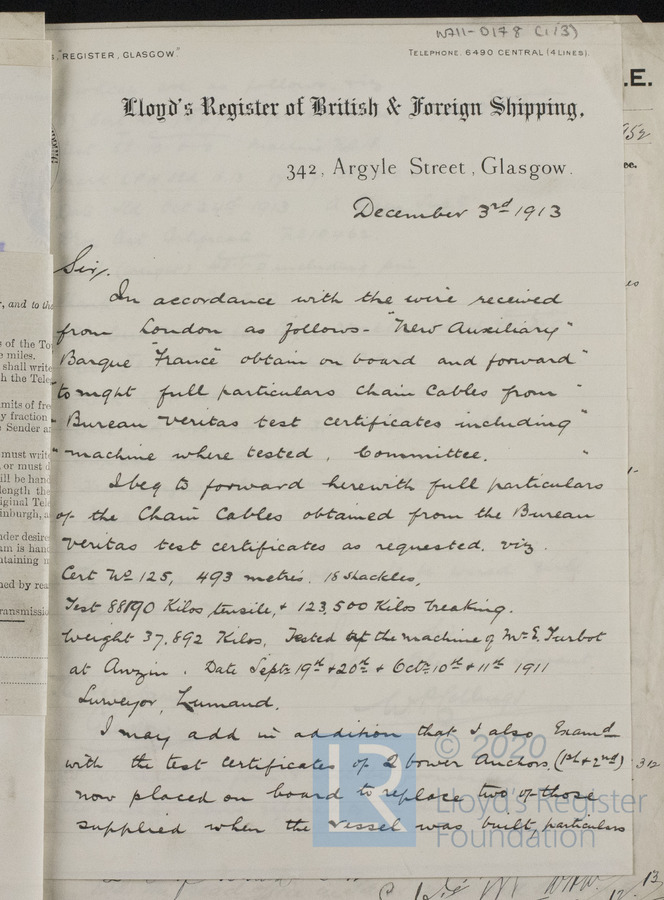 W711-0178 (1/3)
REGISTER, GLASGOW."
TELEPHONE. 6490 CENTRAL (4 LINES).
Lloyd's Register of British & Foreign Shipping,
342, Argyle Street, Glasgow.
December 3rd 1913
Sir,
In accordance with the wire received
from London as follows - "New Auxiliary"
Barque "France" obtain on board and forward"
"tonight full particulars Chain Cables from "
"Bureau Veritas test certificates including"
"machine where tested, Committee. "
I beg to forward herewith full particulars
of the Chain Cables obtained from the Bureau
Veritas test certificates as requested. viz.
Cert No 125, 493 metres. 18 shackles,
Test 88190 Kilos, tensile, + 123,500 Kilos breaking.
Weight 37,892 Kilos. Tested at the machine of Mr E. Turbot
at Anzin. Date Septr 19th + 20th + Octr 10th + 11th 1911
Surveyor,
I may add in addition that I also Examd
with the test certificates of 2 bower Anchors, (1st + 2nd)
now placed on board to replace two of those
supplied when the vessel was built, particulars
© 2020
Lloyd's Register
Foundation
LR
.E.
952
, and to the
s of the To
e miles.
shall write
h the Tele
mits of fre
y fraction
Sender a
must writ
or must
ill be hand
length the
iginal Tele
inburgh, a
nder desire
am is hand
ntaining
ned by rea
ransmissi